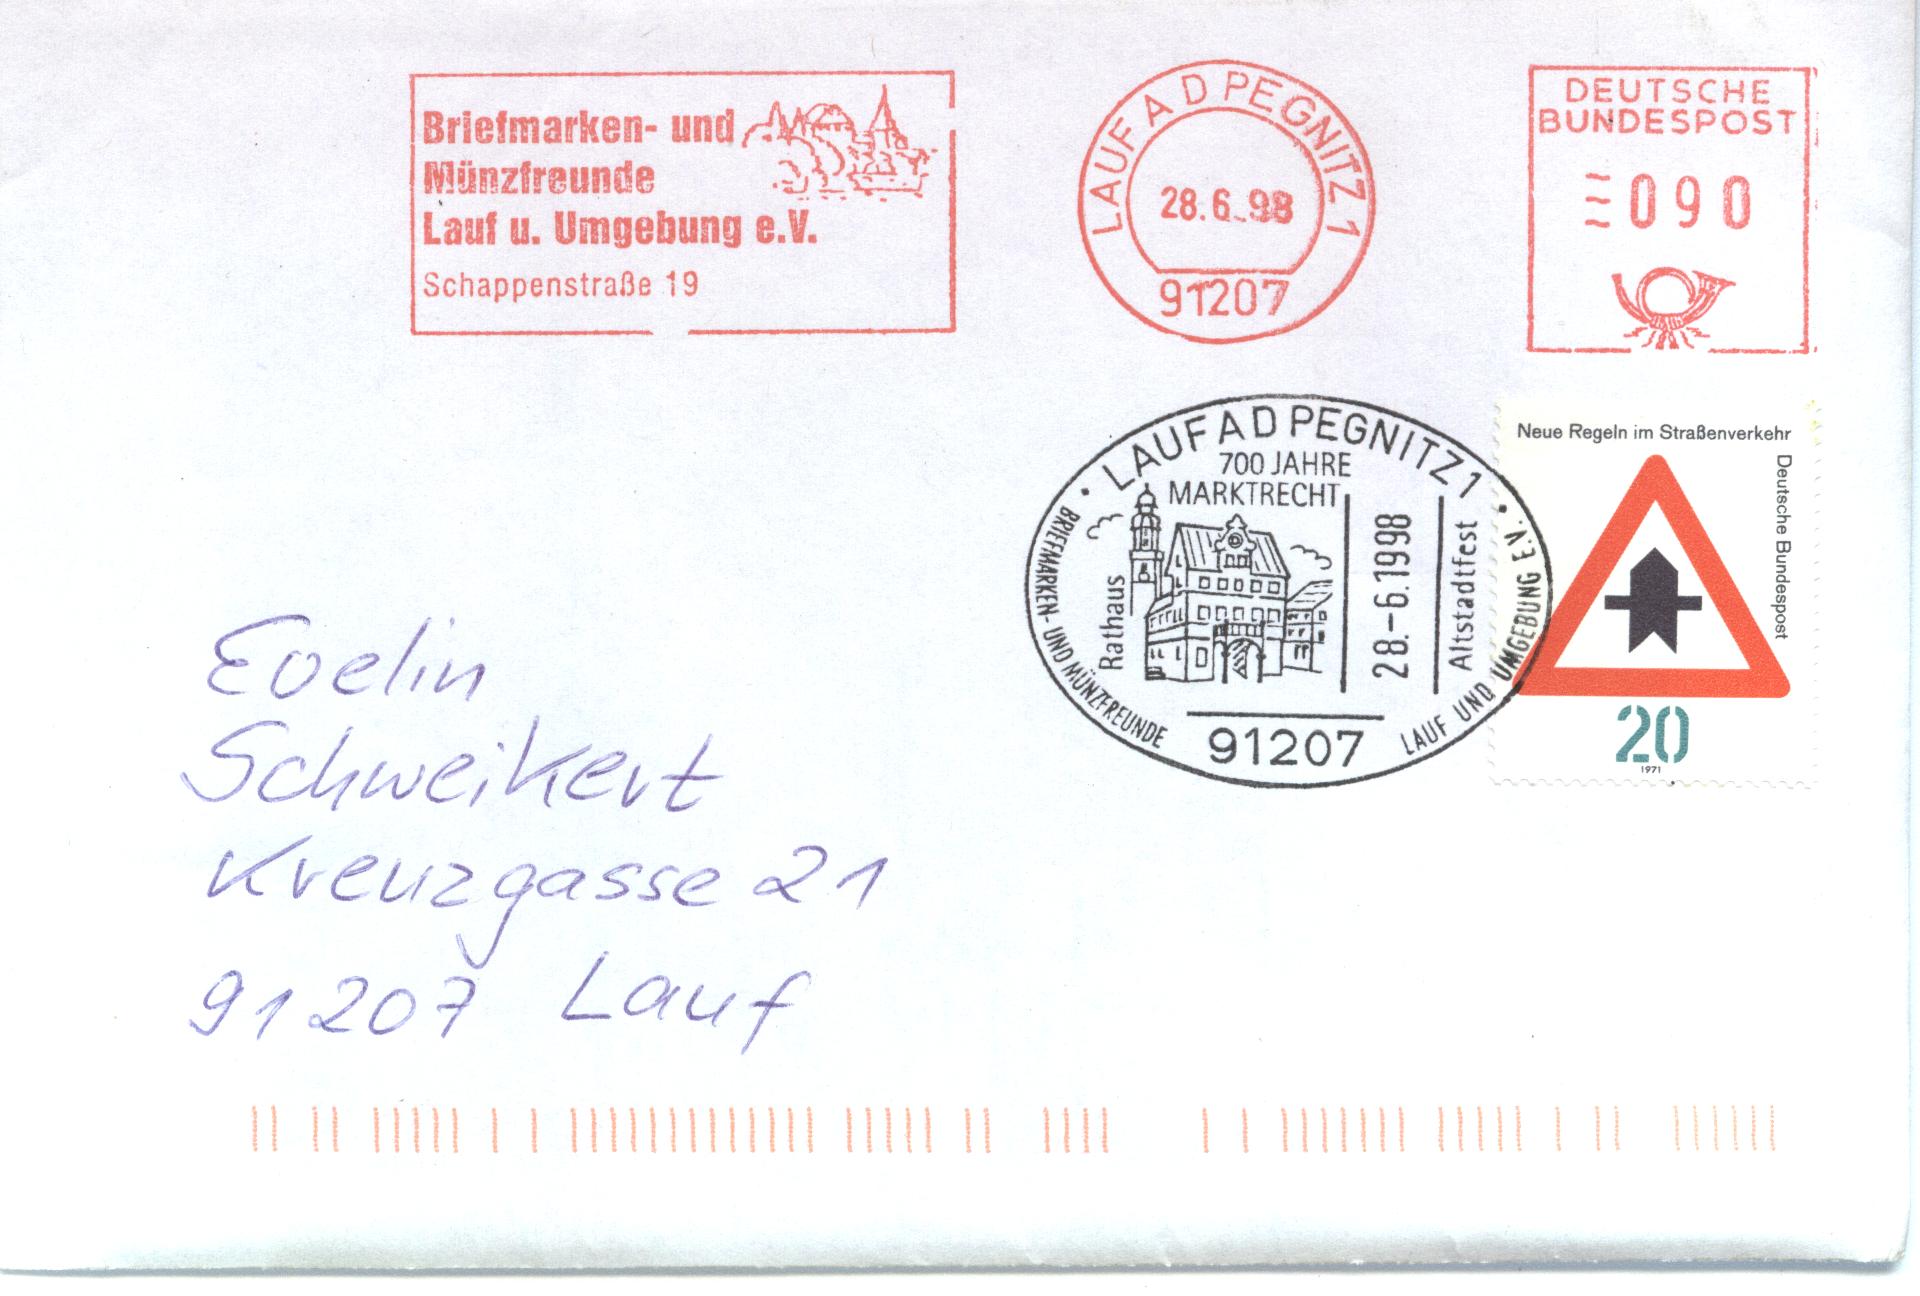 Briefmarken- und
Münzfreunde
Lauf u. Umgebung e.V.
Schappenstraße 19
LAUF A D PEGNITZ 1
28.6.98
91207
DEUTSCHE
BUNDESPOST
090
LAUF A D PEGNITZ 1
700 JAHRE
MARKTRECHT
Rathaus
28.-6.1998
Altstadtfest
BRIEFMARKEN- UND MÜNZFREUNDE
LAUF UND UMGEBUNG E.V.
91207
Neue Regeln im Straßenverkehr
Deutsche Bundespost
20
1971
Evelin
Schweikert
Kreuzgasse 21
91207 Lauf